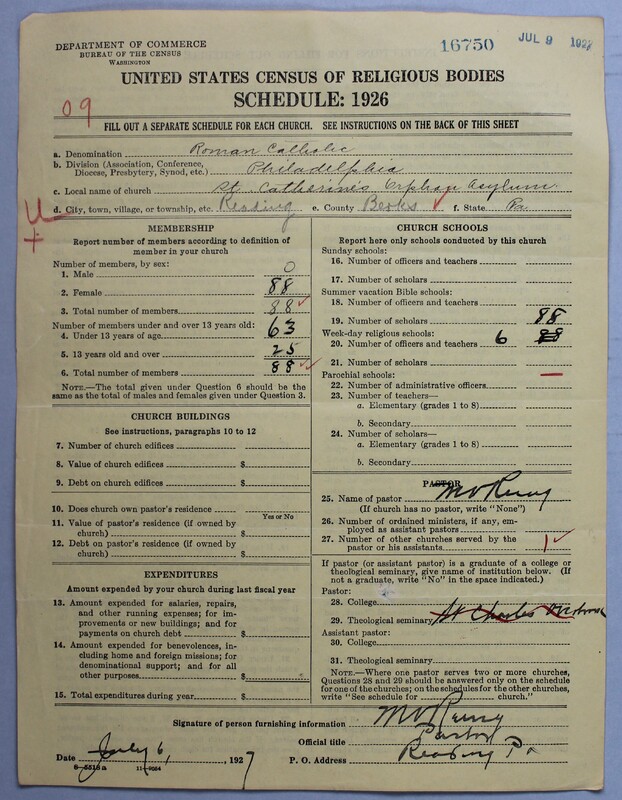 DEPARTMENT OF COMMERCE
BUREAU OF THE CENSUS
WASHINGTON
16750
JUL 9 1927
UNITED STATES CENSUS OF RELIGIOUS BODIES
SCHEDULE: 1926
09
FILL OUT A SEPARATE SCHEDULE FOR EACH CHURCH. SEE INSTRUCTIONS ON THE BACK OF THIS SHEET
a. Denomination Roman Catholic
b. Division (Association, Conference, Diocese, Presbytery, Synod, etc.) Philadelphia
c. Local name of church St. Catherine's Orphan Asylum
d. City, town, village, or township, etc. Reading e. County Berks f. State Pa.
MEMBERSHIP
Report number of members according to definition of member in your church
Number of members, by sex:
1. Male 0
2. Female 88
3. Total number of members 88
Number of members under and over 13 years old:
4. Under 13 years of age 63
5. 13 years old and over 25
6. Total number of members 88
NOTE.—The total given under Question 6 should be the same as the total of males and females given under Question 3.
CHURCH BUILDINGS
See instructions, paragraphs 10 to 12
7. Number of church edifices
8. Value of church edifices $
9. Debt on church edifices $
10. Does church own pastor's residence
Yes or No
11. Value of pastor's residence (if owned by church) $
12. Debt on pastor's residence (if owned by church) $
EXPENDITURES
Amount expended by your church during last fiscal year
13. Amount expended for salaries, repairs, and other running expenses; for improvements or new buildings; and for payments on church debt $
14. Amount expended for benevolences, including home and foreign missions; for denominational support; and for all other purposes $
15. Total expenditures during year $
CHURCH SCHOOLS
Report here only schools conducted by this church
Sunday schools:
16. Number of officers and teachers
17. Number of scholars
Summer vacation Bible schools:
18. Number of officers and teachers
19. Number of scholars 88
Week-day religious schools:
20. Number of officers and teachers 6 88
21. Number of scholars
Parochial schools:
22. Number of administrative officers
23. Number of teachers—
a. Elementary (grades 1 to 8)
b. Secondary
24. Number of scholars—
a. Elementary (grades 1 to 8)
b. Secondary
PASTOR
25. Name of pastor
(If church has no pastor, write "None")
26. Number of ordained ministers, if any, employed as assistant pastors
27. Number of other churches served by the pastor or his assistants 1
If pastor (or assistant pastor) is a graduate of a college or theological seminary, give name of institution below. (If not a graduate, write "No" in the space indicated.)
Pastor:
28. College
29. Theological seminary St Charles
Assistant pastor:
30. College
31. Theological seminary
NOTE.—Where one pastor serves two or more churches, Questions 28 and 29 should be answered only on the schedule for one of the churches; on the schedules for the other churches, write "See schedule for church."
Signature of person furnishing information
Official title Pastor
Date July 6, 1927 P. O. Address Reading Pa
8-5513a 11-9024